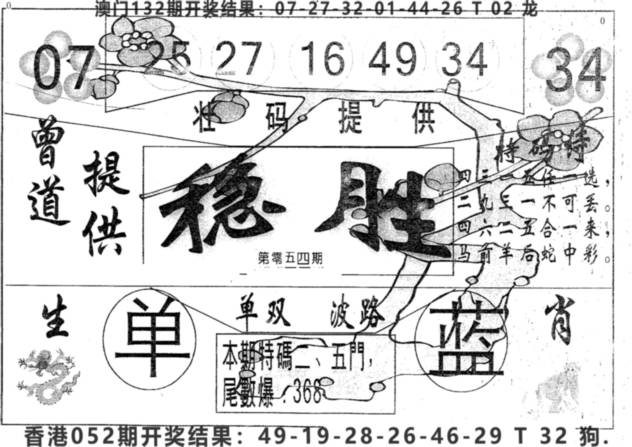 澳门132期开奖结果：07-27-32-01-44-26 T 02 龙
07 25 27 16 49 34 34
壮 码 提 供
曾道
提供
稳胜
第零五四期
特码诗
四二一五任一选，
二九三一不可丢。
四六二五合一来，
马前羊后蛇中彩。
生 单 单双 波路 蓝 肖
本期特碼二、五門，
尾數爆：368
香港052期开奖结果：49-19-28-26-46-29 T 32 狗.